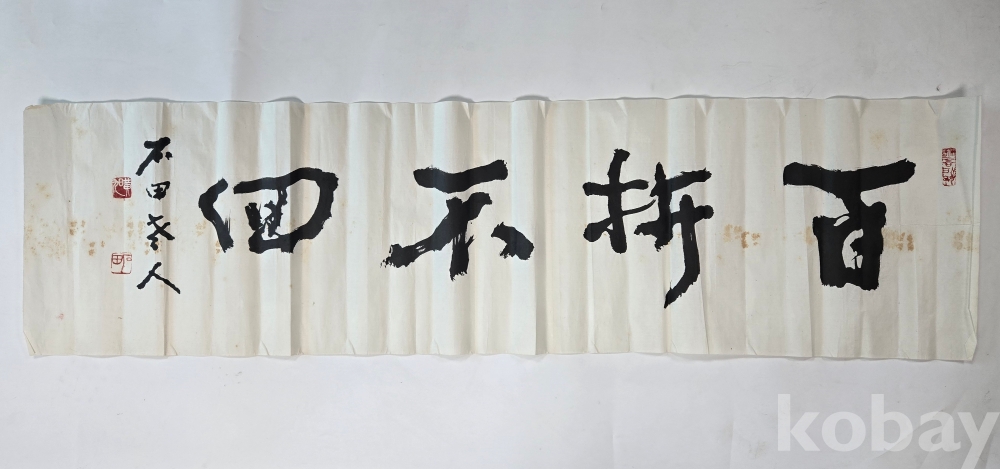 百折不回
石田老人
kobay